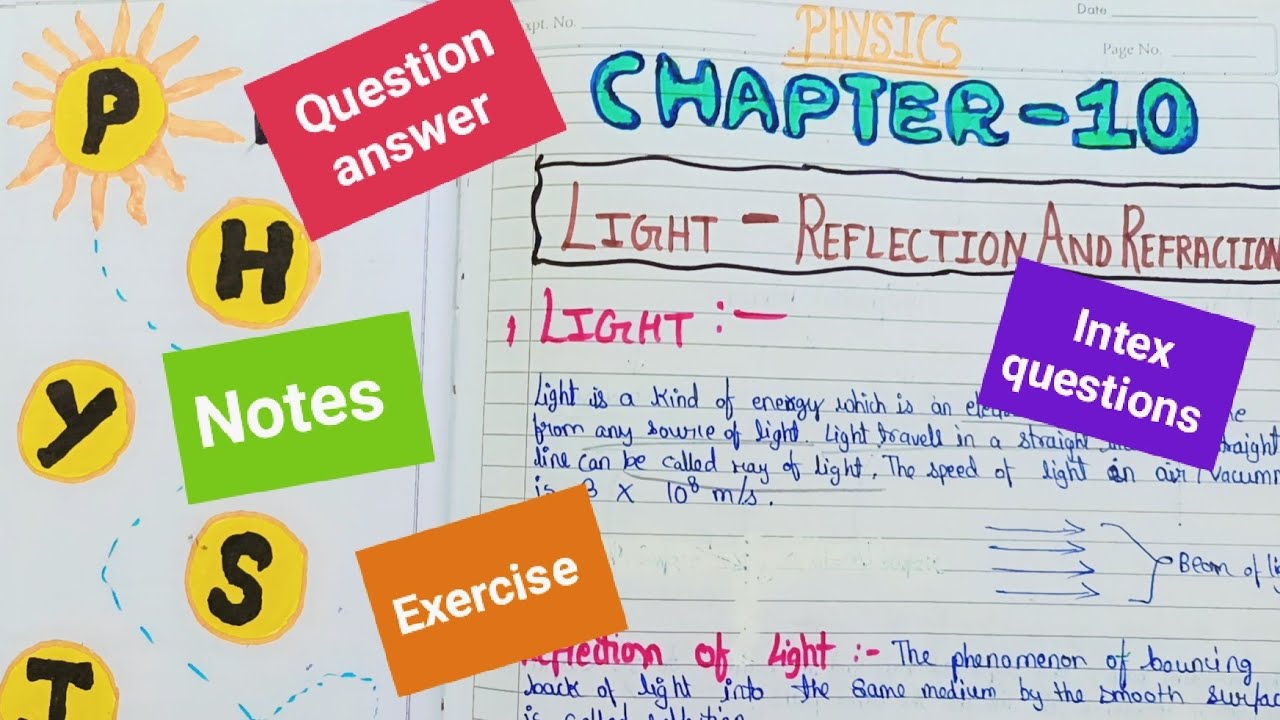 P
H
Y
S
I
Question
answer
Notes
Exercise
Intex
questions
Expt. No.
Date
Page No.
PHYSICS
CHAPTER-10
LIGHT - REFLECTION AND REFRACTION
1 LIGHT :-
Light is a kind of energy which is an
from any source of light. Light travell in a straight
line can be called ray of light. The speed of light in air/vacumm
is 3 X 10⁸ m/s.
Beam of
Reflection of Light :- The phenomenon of bouncing
back of light into the same medium by the smooth
is called